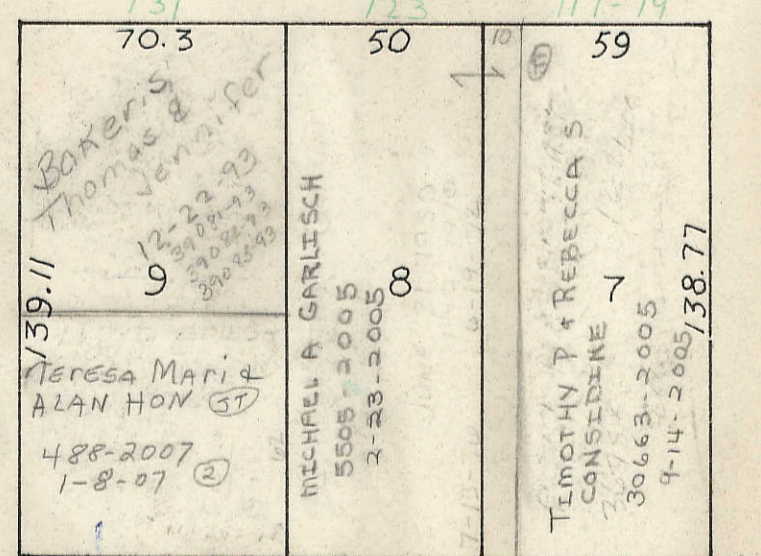 131
123
117-19
70.3
50
10
59
Baker, S
Thomas &
Jennifer
12-22-93
39081-93
39082-93
39083-93
9
139.11
TERESA MARI &
ALAN HON JT
488-2007
1-8-07 2
MICHAEL A GARLISCH
5505-2005
2-23-2005
8
TIMOTHY P & REBECCA S
CONSIDINE
30663-2005
9-14-2005
7
138.77